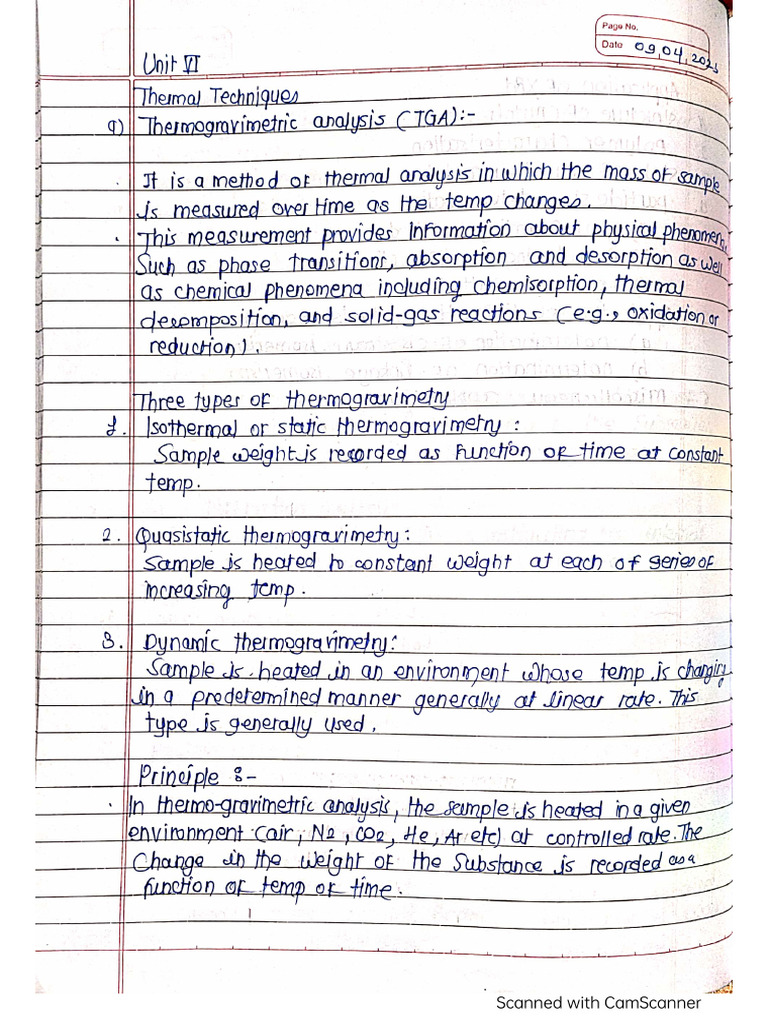 Page No.
Date 09,04,2025
Unit VI
Thermal Techniques
a) Thermogravimetric analysis (TGA):-
. It is a method of thermal analysis in which the mass of sample
is measured over time as the temp changes.
. This measurement provides information about physical phenomena,
Such as phase transitions, absorption and desorption as well
as chemical phenomena including chemisorption, thermal
decomposition, and solid-gas reactions (e.g., oxidation or
reduction).
Three types of thermogravimetry
1. Isothermal or static thermogravimetry:
Sample weight is recorded as function of time at constant
temp.
2. Quasistatic thermogravimetry:
Sample is heated to constant weight at each of series of
increasing temp.
3. Dynamic thermogravimetry:
Sample is heated in an environment whose temp is changing
in a predetermined manner generally at linear rate. This
type is generally used.
Principle :-
. In thermo-gravimetric analysis, the sample is heated in a given
environment (air, N2, CO2, He, Ar etc) at controlled rate. The
Change in the weight of the Substance is recorded as a
function of temp of time.
Scanned with CamScanner